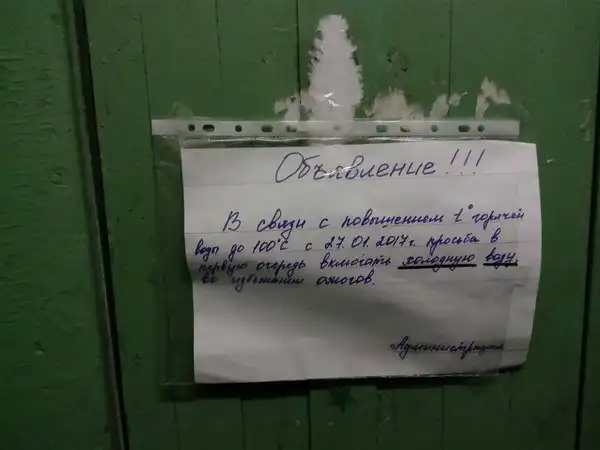 Объявление!!!
В связи с повышением t° горячей
воды до 100°С с 27.01.2017г. просьба в
первую очередь включать холодную воду,
во избежании ожогов.
Администрация